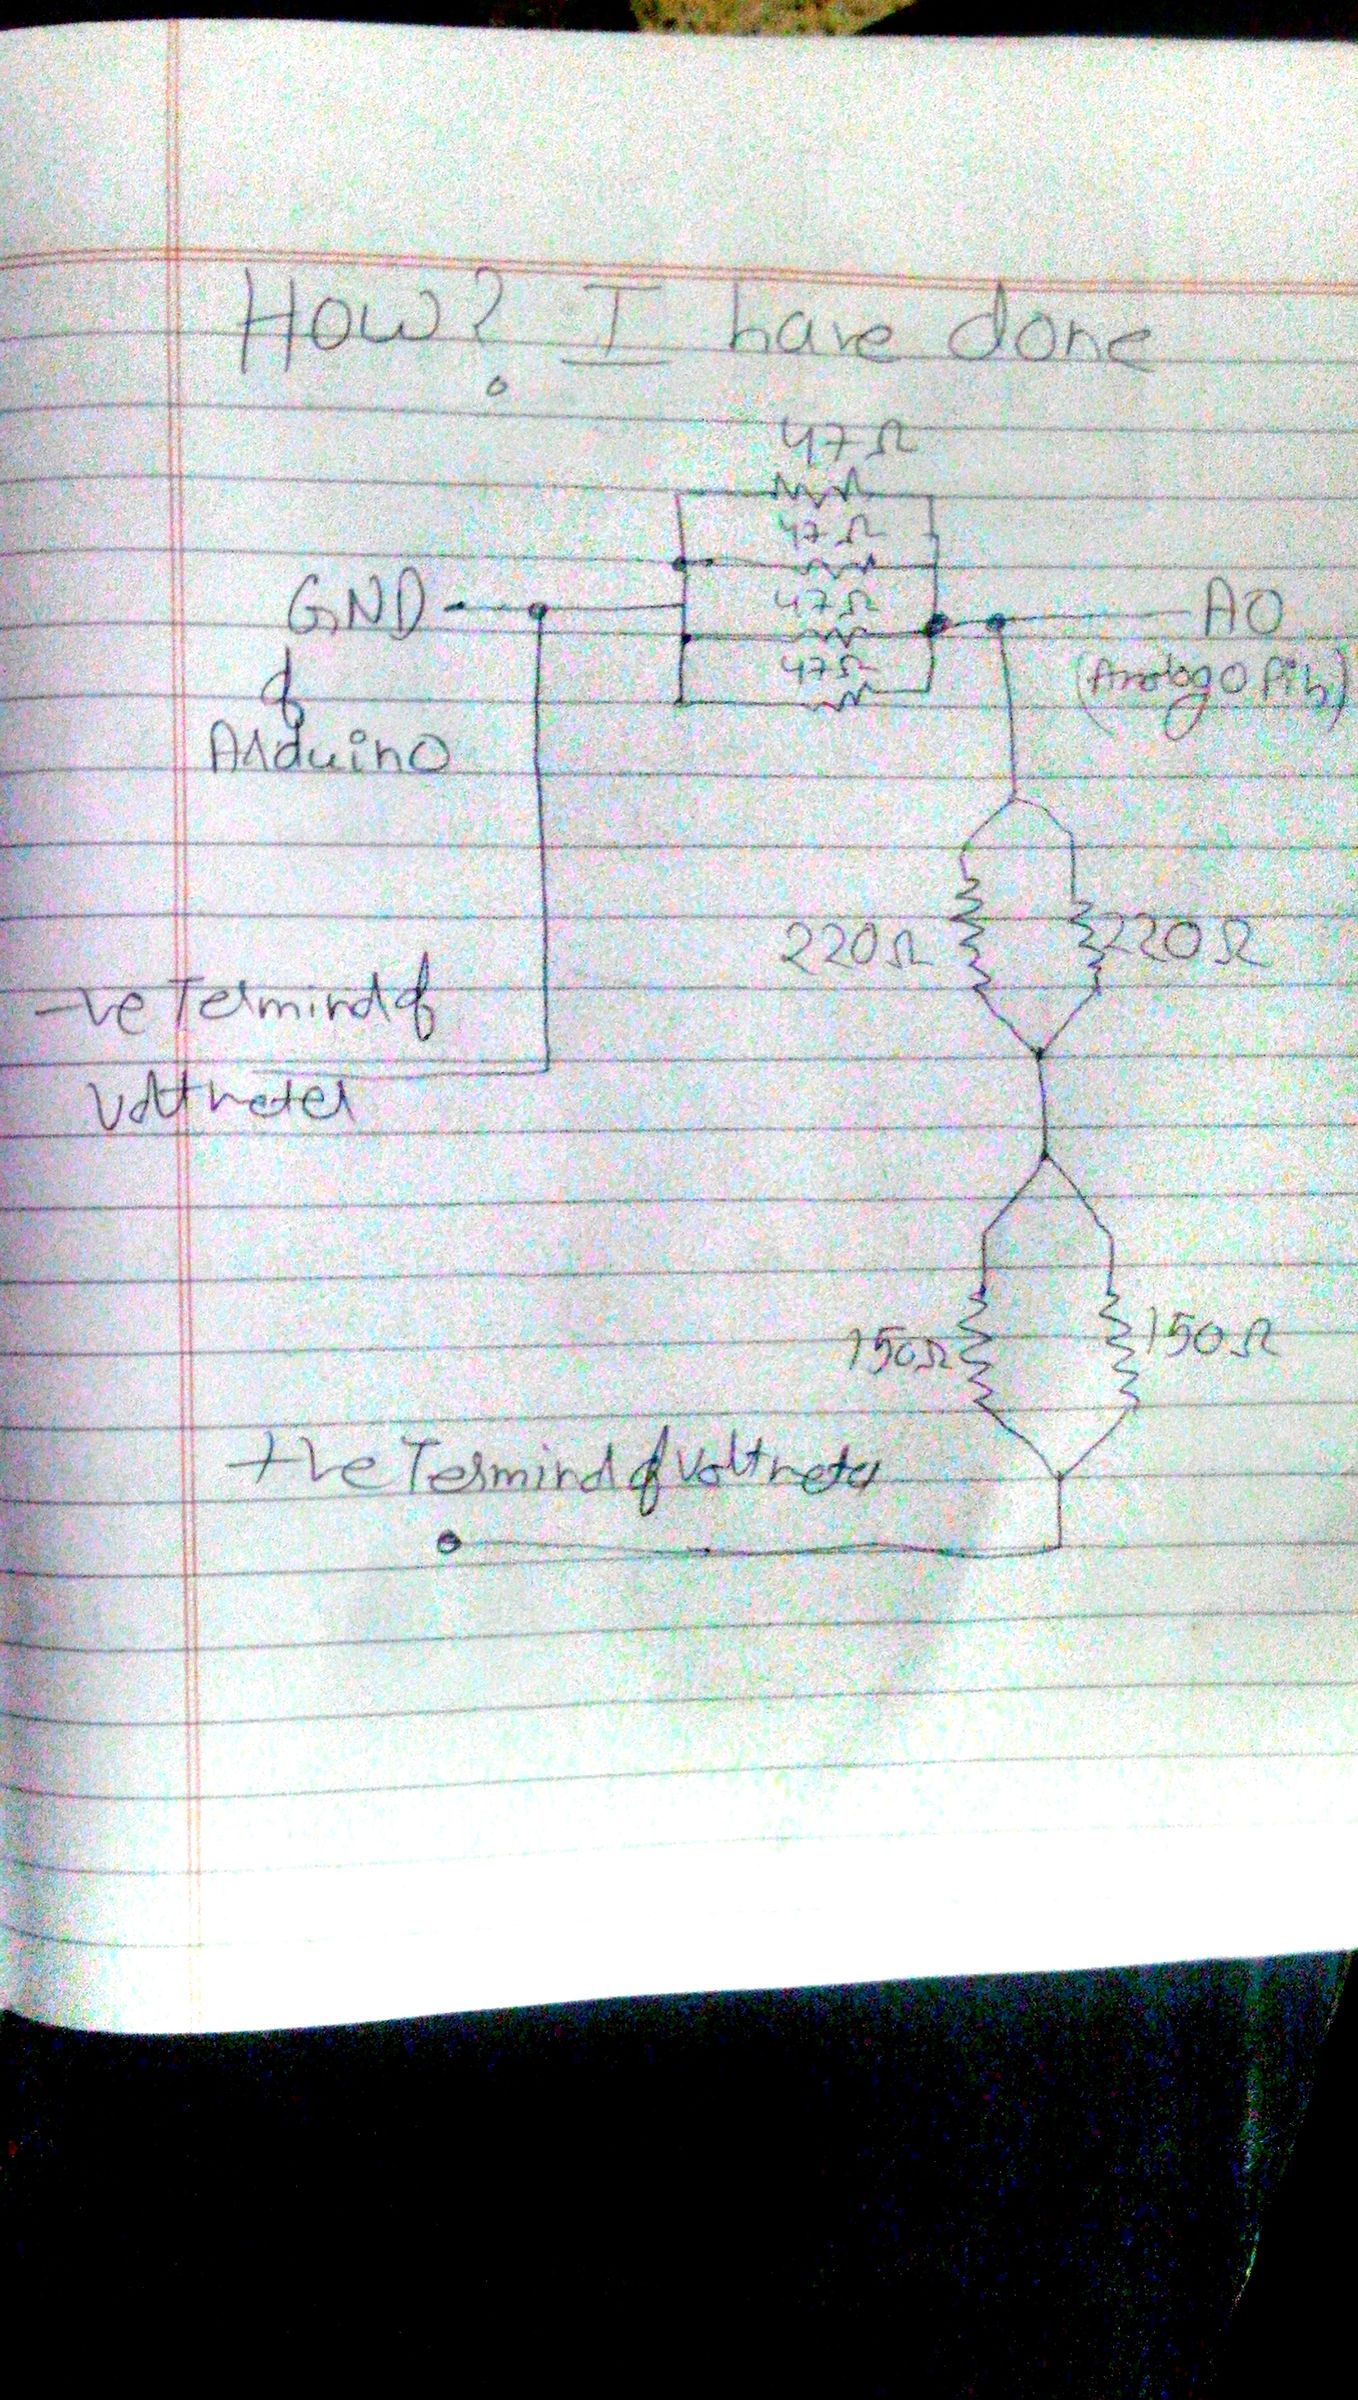 How? I have done
47Ω
47Ω
GND
47Ω
A0
of
47Ω
(Analog 0 Pin)
Arduino
220Ω
220Ω
-ve Terminal of
Voltmeter
150Ω
150Ω
+ve Terminal of Voltmeter